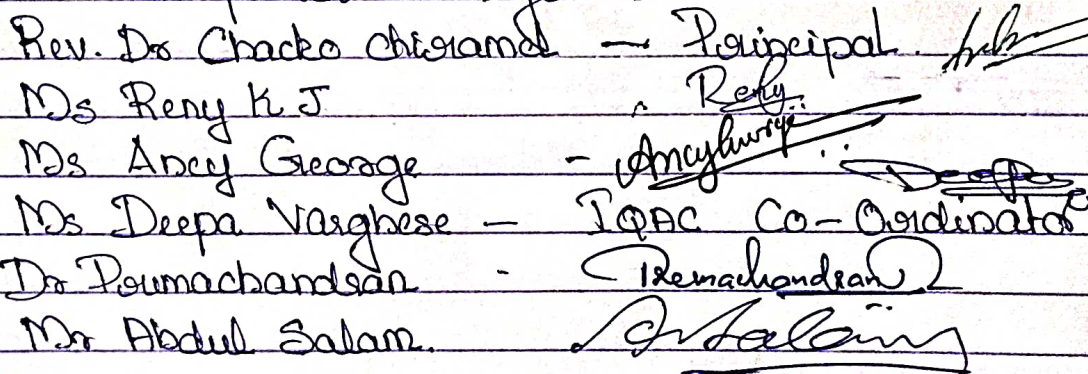 Rev. Dr Chacko Chiramel — Principal.
Ms Reny K J Reny
Ms Ancy George - Ancy George
Deepa
Ms Deepa Varghese — IQAC Co-Ordinator
Dr Premachandran - Premachandran
Mr Abdul Salam. A Salam